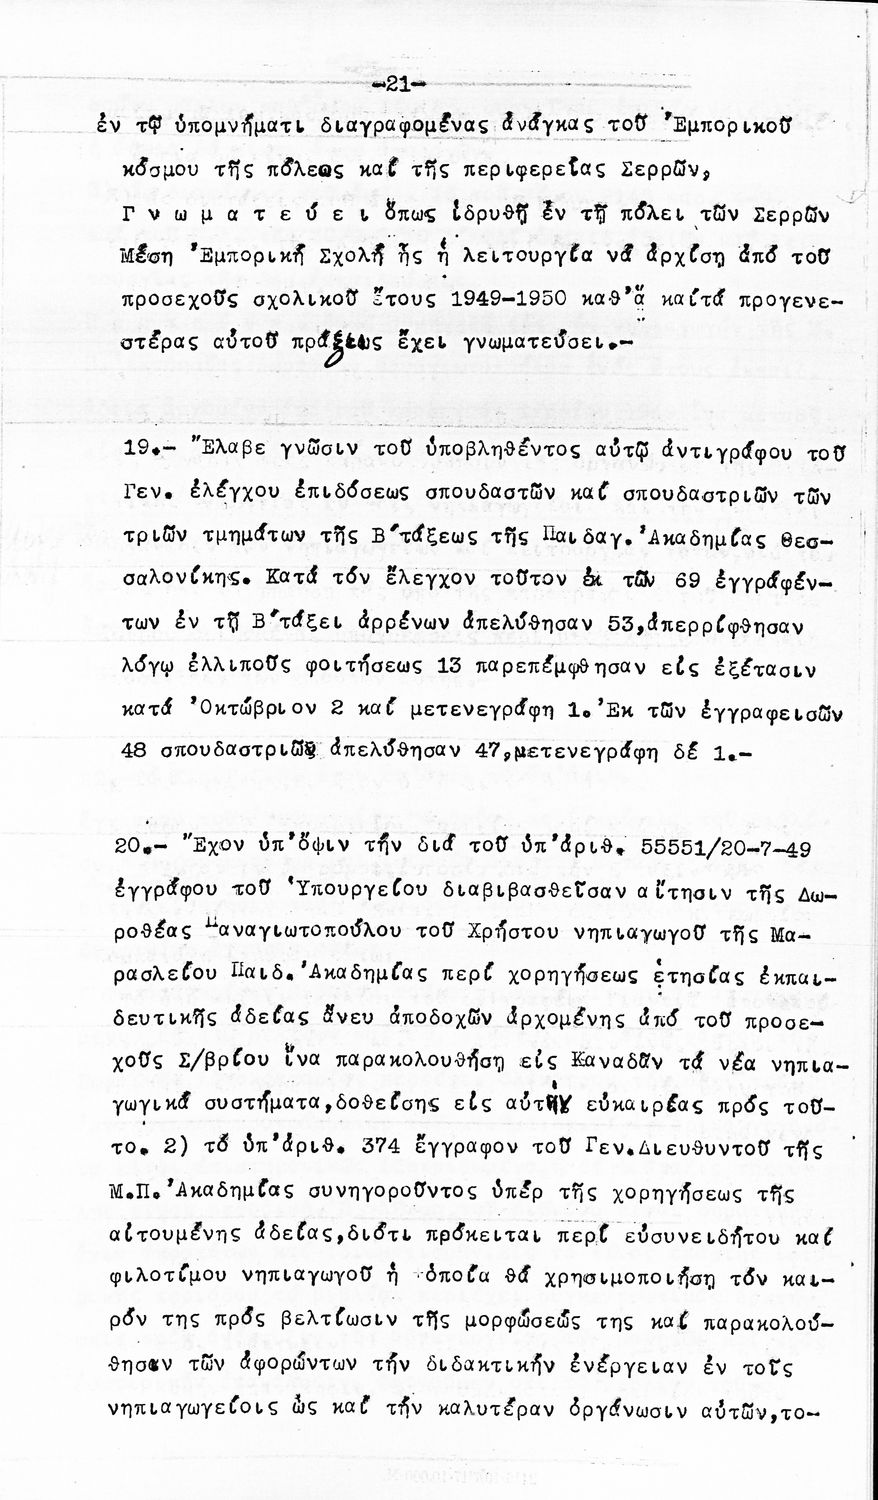 -21-
ἐν τῷ ὑπομνήματι διαγραφομένας ἀνάγκας τοῦ Ἐμπορικοῦ
κόσμου τῆς πόλεως καί τῆς περιφερείας Σερρῶν,
Γ ν ω μ α τ ε ύ ε ι ὅπως ἱδρυθῇ ἐν τῇ πόλει τῶν Σερρῶν
Μέση Ἐμπορική Σχολή ἧς ἡ λειτουργία νά ἀρχίσῃ ἀπό τοῦ
προσεχοῦς σχολικοῦ ἔτους 1949-1950 καθ'ἅ καίτά προγενε-
στέρας αὐτοῦ πράξεις ἔχει γνωματεύσει.-
19.- Ἔλαβε γνῶσιν τοῦ ὑποβληθέντος αὐτῷ ἀντιγράφου τοῦ
Γεν. ἐλέγχου ἐπιδόσεως σπουδαστῶν καί σπουδαστριῶν τῶν
τριῶν τμημάτων τῆς Β'τάξεως τῆς Παιδαγ.Ἀκαδημίας Θεσ-
σαλονίκης. Κατά τόν ἔλεγχον τοῦτον ἐκ τῶν 69 ἐγγράφέν-
των ἐν τῇ Β'τάξει ἀρρένων ἀπελύθησαν 53,ἀπερρίφθησαν
λόγῳ ἐλλιποῦς φοιτήσεως 13 παρεπέμφθησαν εἰς ἐξέτασιν
κατά Ὀκτώβριον 2 καί μετενεγράφη 1.Ἐκ τῶν ἐγγραφεισῶν
48 σπουδαστριῶν ἀπελύθησαν 47,μετενεγράφη δέ 1.-
20.- Ἔχον ὑπ'ὄψιν τήν διά τοῦ ὑπ'ἀριθ. 55551/20-7-49
ἐγγράφου τοῦ Ὑπουργείου διαβιβασθεῖσαν αἴτησιν τῆς Δω-
ροθέας Παναγιωτοπούλου τοῦ Χρήστου νηπιαγωγοῦ τῆς Μα-
ρασλείου Παιδ.Ἀκαδημίας περί χορηγήσεως ἐτησίας ἐκπαι-
δευτικῆς ἀδείας ἄνευ ἀποδοχῶν ἀρχομένης ἀπό τοῦ προσε-
χοῦς Σ/βρίου ἵνα παρακολουθήσῃ εἰς Καναδᾶν τά νέα νηπια-
γωγικά συστήματα,δοθείσης εἰς αὐτήν εὐκαιρέας πρός τοῦ-
το. 2) τό ὑπ'ἀριθ. 374 ἔγγραφον τοῦ Γεν.Διευθυντοῦ τῆς
Μ.Π.Ἀκαδημίας συνηγοροῦντος ὑπέρ τῆς χορηγήσεως τῆς
αἰτουμένης ἀδείας,διότι πρόκειται περί εὐσυνειδήτου καί
φιλοτίμου νηπιαγωγοῦ ἡ ὁποία θά χρησιμοποιήσῃ τόν και-
ρόν της πρός βελτίωσιν τῆς μορφώσεώς της καί παρακολού-
θησιν τῶν ἀφορώντων τήν διδακτικήν ἐνέργειαν ἐν τοῖς
νηπιαγωγείοις ὡς καί τήν καλυτέραν ὀργάνωσιν αὐτῶν,το-